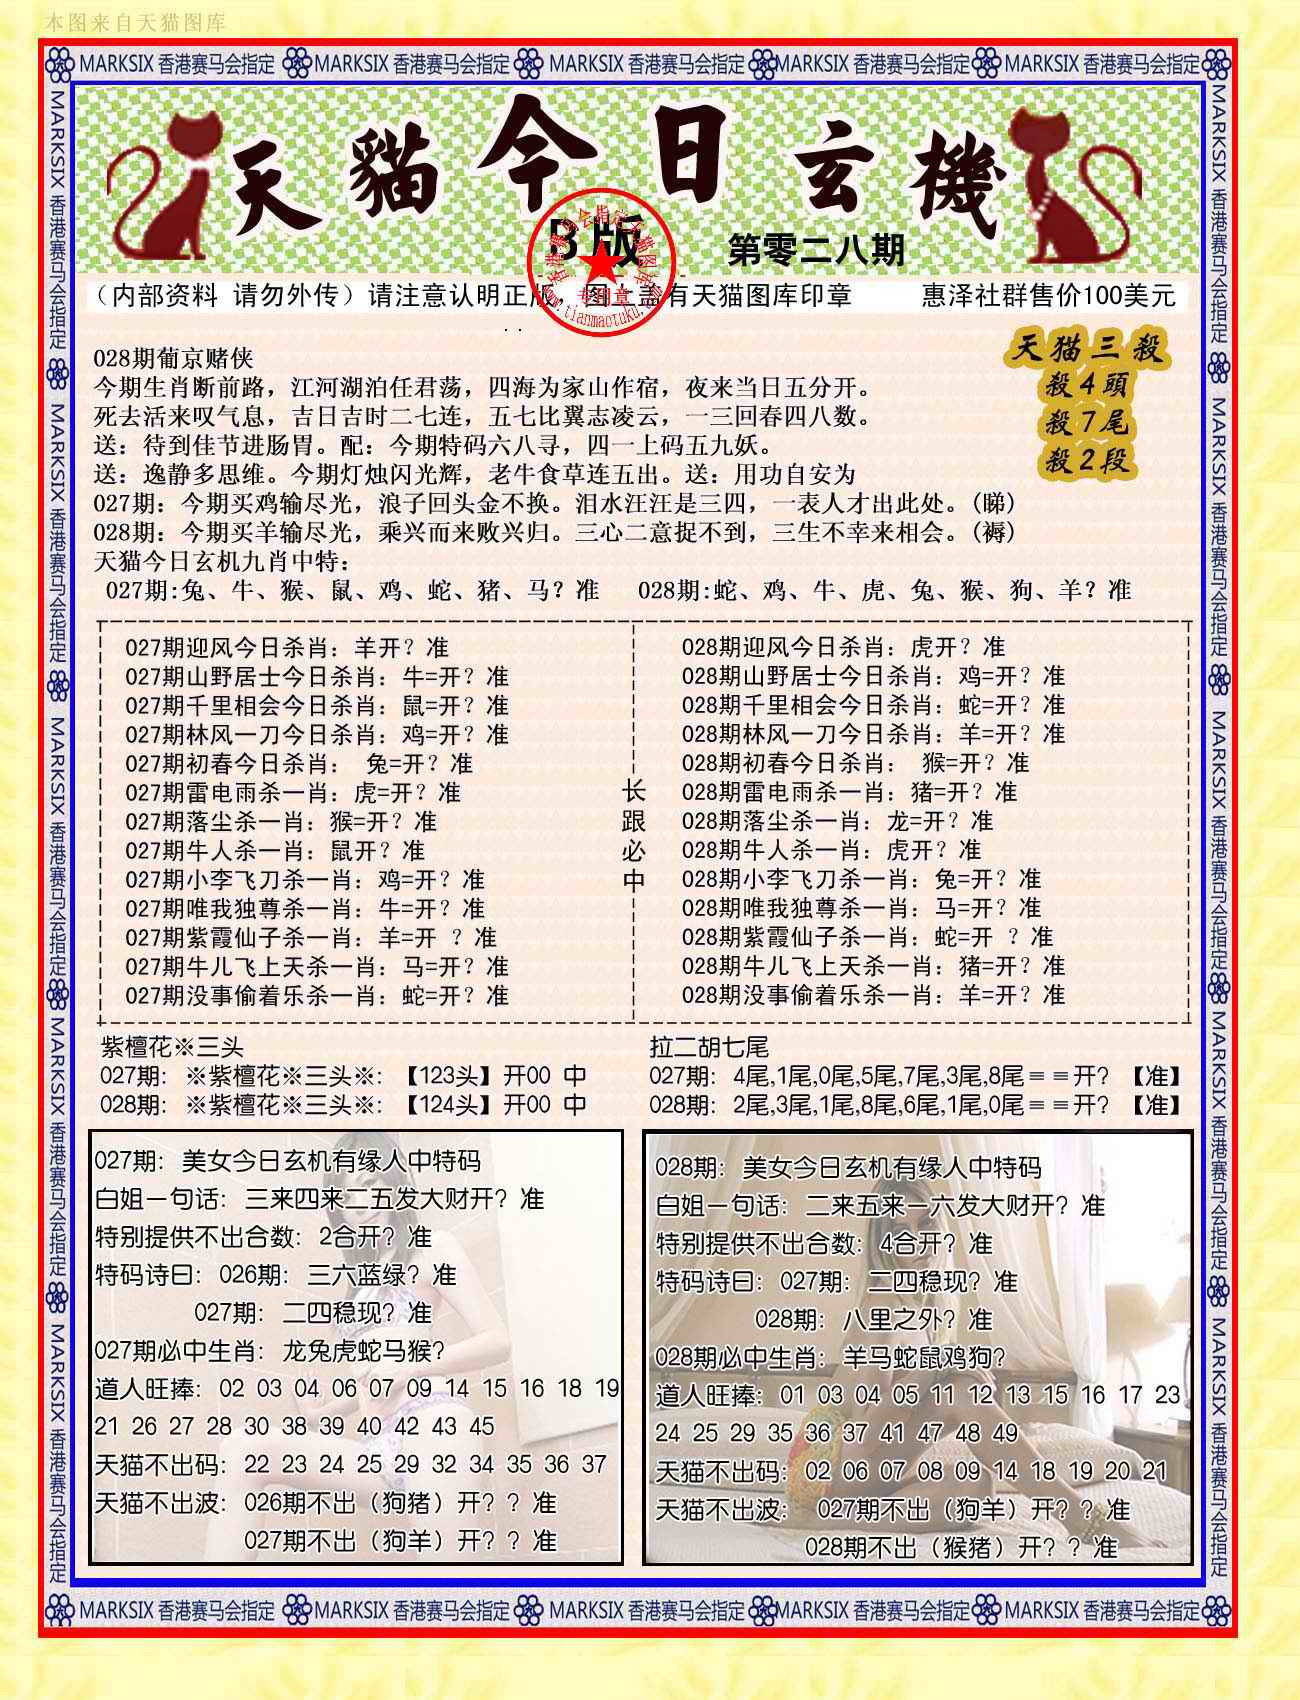 本图来自天猫图库
MARKSIX 香港赛马会指定 MARKSIX 香港赛马会指定 MARKSIX 香港赛马会指定 MARKSIX 香港赛马会指定 MARKSIX 香港赛马会指定
MARKSIX 香港赛马会指定 MARKSIX 香港赛马会指定 MARKSIX 香港赛马会指定 MARKSIX 香港赛马会指定 MARKSIX 香港赛马会指定
天貓今日玄機
B版
第零二八期
香港赛马会指定天猫图库
专用章
www.tianmaotuku.com
（内部资料 请勿外传）请注意认明正版，图上盖有天猫图库印章 惠泽社群售价100美元
天猫三殺
殺4頭
殺7尾
殺2段
028期葡京赌侠
今期生肖断前路，江河湖泊任君荡，四海为家山作宿，夜来当日五分开。
死去活来叹气息，吉日吉时二七连，五七比翼志凌云，一三回春四八数。
送：待到佳节进肠胃。配：今期特码六八寻，四一上码五九妖。
送：逸静多思维。今期灯烛闪光辉，老牛食草连五出。送：用功自安为
027期：今期买鸡输尽光，浪子回头金不换。泪水汪汪是三四，一表人才出此处。(睇)
028期：今期买羊输尽光，乘兴而来败兴归。三心二意捉不到，三生不幸来相会。(褥)
天猫今日玄机九肖中特：
027期:兔、牛、猴、鼠、鸡、蛇、猪、马？准 028期:蛇、鸡、牛、虎、兔、猴、狗、羊？准
027期迎风今日杀肖：羊开？准
027期山野居士今日杀肖：牛=开？准
027期千里相会今日杀肖：鼠=开？准
027期林风一刀今日杀肖：鸡=开？准
027期初春今日杀肖： 兔=开？准
027期雷电雨杀一肖：虎=开？准
027期落尘杀一肖：猴=开？准
027期牛人杀一肖：鼠开？准
027期小李飞刀杀一肖：鸡=开？准
027期唯我独尊杀一肖：牛=开？准
027期紫霞仙子杀一肖：羊=开 ？准
027期牛儿飞上天杀一肖：马=开？准
027期没事偷着乐杀一肖：蛇=开？准
长跟必中
028期迎风今日杀肖：虎开？准
028期山野居士今日杀肖：鸡=开？准
028期千里相会今日杀肖：蛇=开？准
028期林风一刀今日杀肖：羊=开？准
028期初春今日杀肖： 猴=开？准
028期雷电雨杀一肖：猪=开？准
028期落尘杀一肖：龙=开？准
028期牛人杀一肖：虎开？准
028期小李飞刀杀一肖：兔=开？准
028期唯我独尊杀一肖：马=开？准
028期紫霞仙子杀一肖：蛇=开 ？准
028期牛儿飞上天杀一肖：猪=开？准
028期没事偷着乐杀一肖：羊=开？准
紫檀花※三头
027期: ※紫檀花※三头※: 【123头】开00 中
028期: ※紫檀花※三头※: 【124头】开00 中
拉二胡七尾
027期: 4尾,1尾,0尾,5尾,7尾,3尾,8尾＝＝开？【准】
028期: 2尾,3尾,1尾,8尾,6尾,1尾,0尾＝＝开？【准】
027期：美女今日玄机有缘人中特码
白姐一句话：三来四来二五发大财开？准
特别提供不出合数：2合开？准
特码诗曰：026期：三六蓝绿？准
027期：二四稳现？准
027期必中生肖：龙兔虎蛇马猴？
道人旺捧：02 03 04 06 07 09 14 15 16 18 19
21 26 27 28 30 38 39 40 42 43 45
天猫不出码：22 23 24 25 29 32 34 35 36 37
天猫不出波：026期不出（狗猪）开？？准
027期不出（狗羊）开？？准
028期：美女今日玄机有缘人中特码
白姐一句话：二来五来一六发大财开？准
特别提供不出合数：4合开？准
特码诗曰：027期：二四稳现？准
028期：八里之外？准
028期必中生肖：羊马蛇鼠鸡狗？
道人旺捧：01 03 04 05 11 12 13 15 16 17 23
24 25 29 35 36 37 41 47 48 49
天猫不出码：02 06 07 08 09 14 18 19 20 21
天猫不出波： 027期不出（狗羊）开？？准
028期不出（猴猪）开？？准
MARKSIX 香港赛马会指定 MARKSIX 香港赛马会指定 MARKSIX 香港赛马会指定 MARKSIX 香港赛马会指定 MARKSIX 香港赛马会指定
MARKSIX 香港赛马会指定 MARKSIX 香港赛马会指定 MARKSIX 香港赛马会指定 MARKSIX 香港赛马会指定 MARKSIX 香港赛马会指定